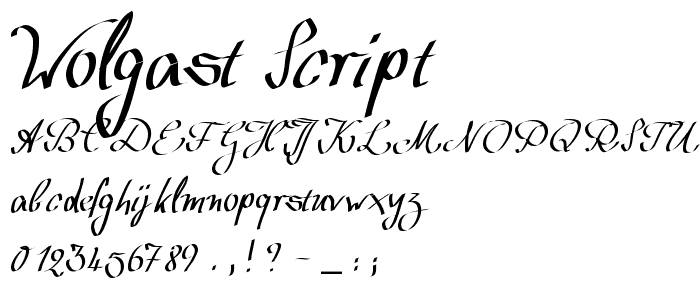 Wolgast Script
ABCDEFGHIJKLMNOPQRSTU
abcdefghijklmnopqrstuvwxyz
0123456789 .,!? – _ : ;